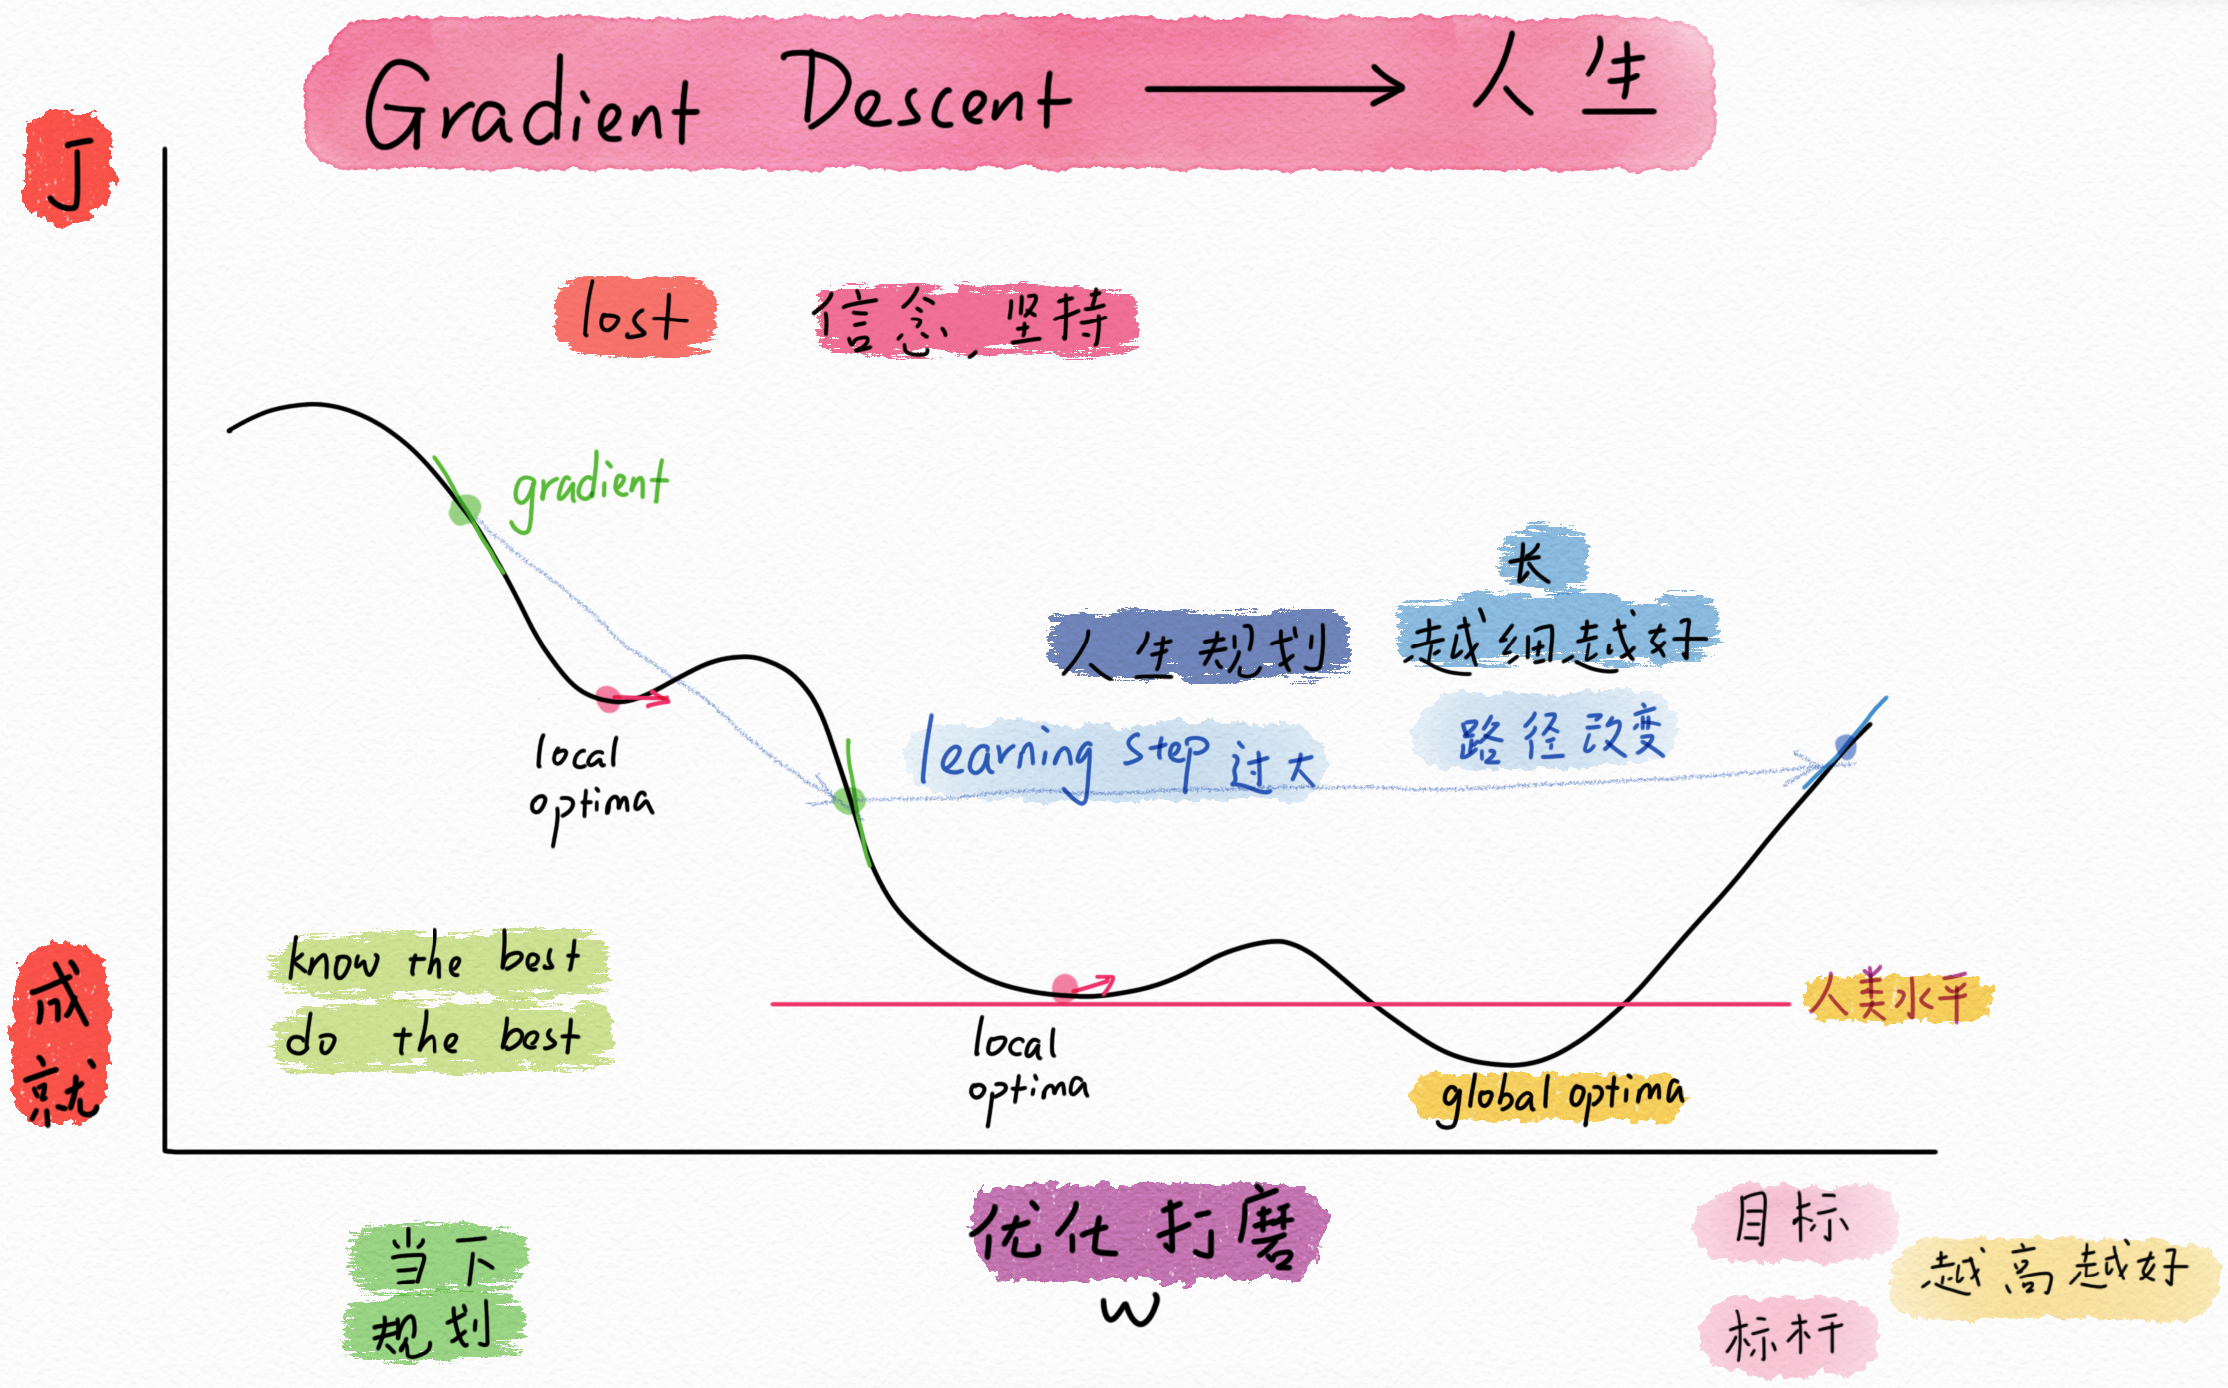 Gradient Descent → 人生
J
lost
信念、坚持
gradient
长
人生规划
越细越好
learning step 过大
路径改变
local
optima
know the best
do the best
成就
人类水平
local
optima
global optima
优化打磨
W
当下
规划
目标
越高越好
标杆